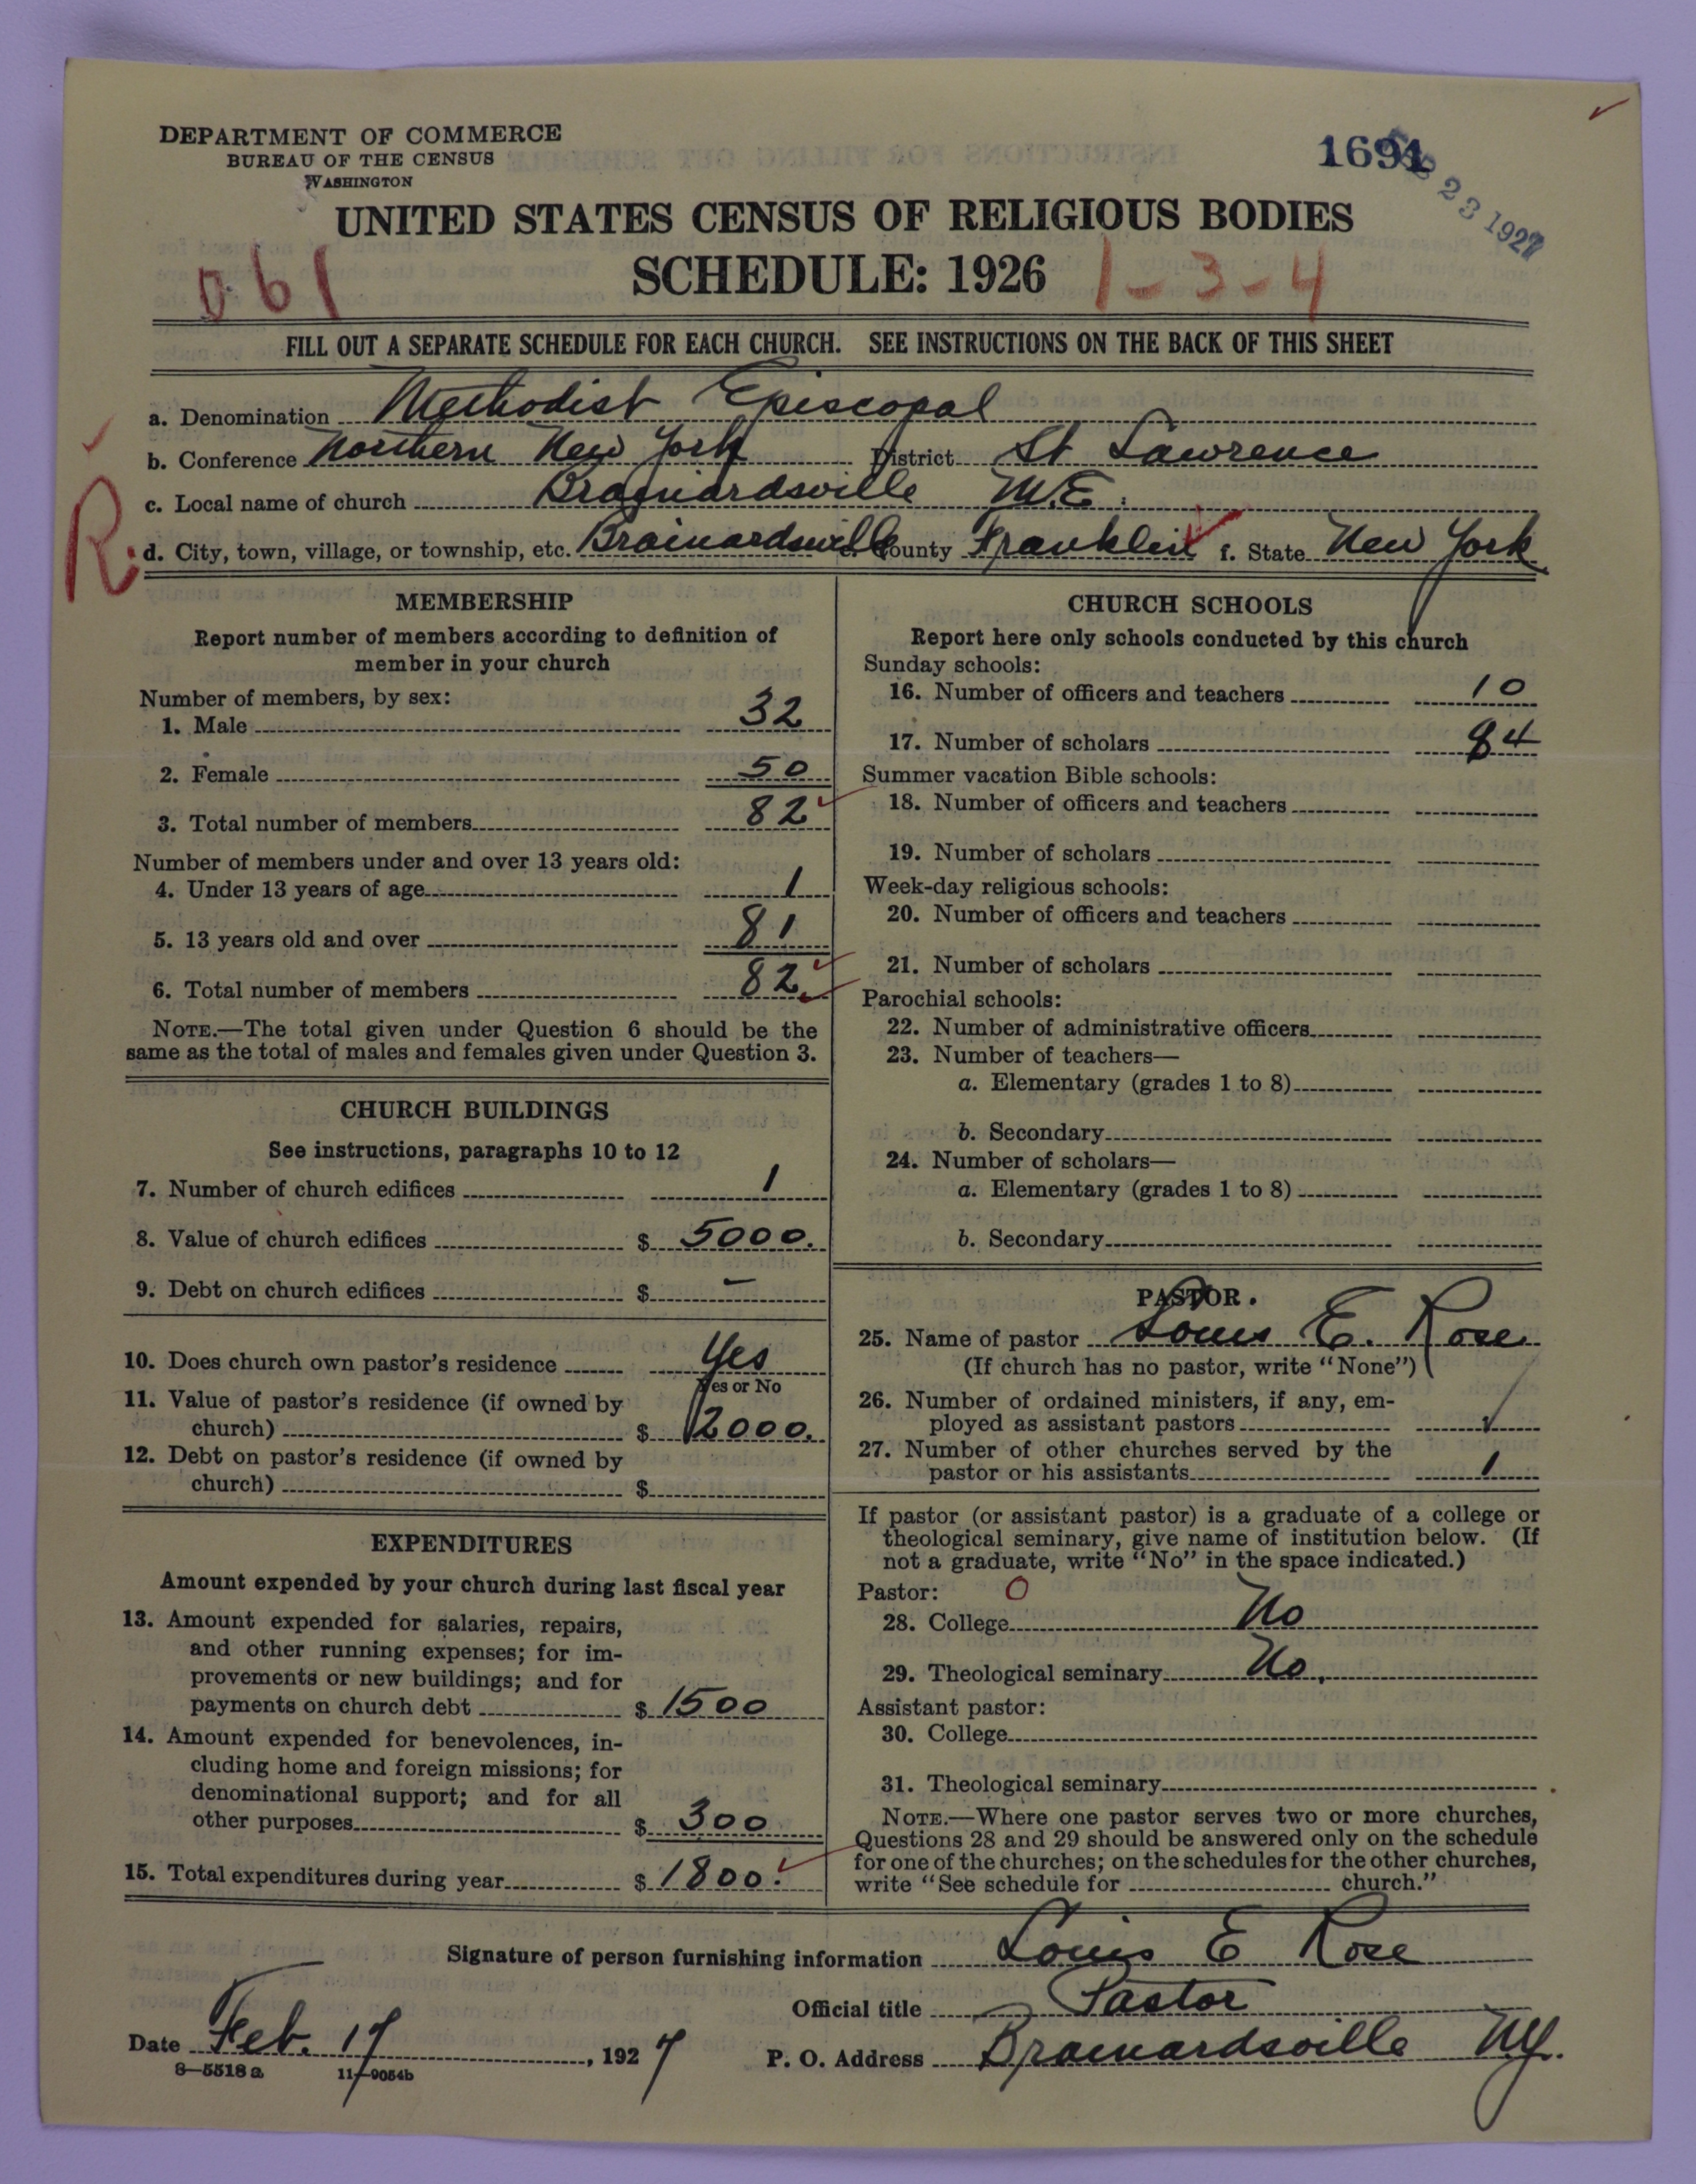 DEPARTMENT OF COMMERCE
BUREAU OF THE CENSUS
WASHINGTON
1691
23 1927
UNITED STATES CENSUS OF RELIGIOUS BODIES
SCHEDULE: 1926
061
1-3-4
FILL OUT A SEPARATE SCHEDULE FOR EACH CHURCH. SEE INSTRUCTIONS ON THE BACK OF THIS SHEET
a. Denomination Methodist Episcopal
b. Conference Northern New York District St Lawrence
c. Local name of church Brainardsville M.E.
R. d. City, town, village, or township, etc. Brainardsville County Franklin f. State New York
MEMBERSHIP
Report number of members according to definition of
member in your church
Number of members, by sex:
1. Male 32
2. Female 50
3. Total number of members 82
Number of members under and over 13 years old:
4. Under 13 years of age 1
5. 13 years old and over 81
6. Total number of members 82
NOTE.—The total given under Question 6 should be the
same as the total of males and females given under Question 3.
CHURCH BUILDINGS
See instructions, paragraphs 10 to 12
7. Number of church edifices 1
8. Value of church edifices $ 5000.
9. Debt on church edifices $ –
10. Does church own pastor's residence Yes
Yes or No
11. Value of pastor's residence (if owned by
church) $ 2000.
12. Debt on pastor's residence (if owned by
church) $
EXPENDITURES
Amount expended by your church during last fiscal year
13. Amount expended for salaries, repairs,
and other running expenses; for im-
provements or new buildings; and for
payments on church debt $ 1500
14. Amount expended for benevolences, in-
cluding home and foreign missions; for
denominational support; and for all
other purposes $ 300
15. Total expenditures during year $ 1800.
CHURCH SCHOOLS
Report here only schools conducted by this church
Sunday schools:
16. Number of officers and teachers 10
17. Number of scholars 84
Summer vacation Bible schools:
18. Number of officers and teachers
19. Number of scholars
Week-day religious schools:
20. Number of officers and teachers
21. Number of scholars
Parochial schools:
22. Number of administrative officers
23. Number of teachers—
a. Elementary (grades 1 to 8)
b. Secondary
24. Number of scholars—
a. Elementary (grades 1 to 8)
b. Secondary
PASTOR.
25. Name of pastor Louis E. Rose
(If church has no pastor, write "None")
26. Number of ordained ministers, if any, em-
ployed as assistant pastors
27. Number of other churches served by the
pastor or his assistants 1
If pastor (or assistant pastor) is a graduate of a college or
theological seminary, give name of institution below. (If
not a graduate, write "No" in the space indicated.)
Pastor: O
28. College No
29. Theological seminary No.
Assistant pastor:
30. College
31. Theological seminary
NOTE.—Where one pastor serves two or more churches,
Questions 28 and 29 should be answered only on the schedule
for one of the churches; on the schedules for the other churches,
write "See schedule for church."
Signature of person furnishing information Louis E Rose
Official title Pastor
Date Feb. 17, 1927 P. O. Address Brainardsville N.Y.
8—5518 a 11—9054b